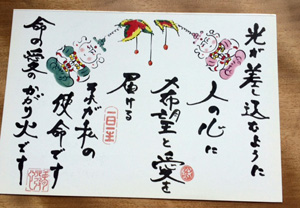 光が差し込むように
人の心に
希望と愛を
届ける
一日一生
それが私の
使命です
命の愛の
かがり火です